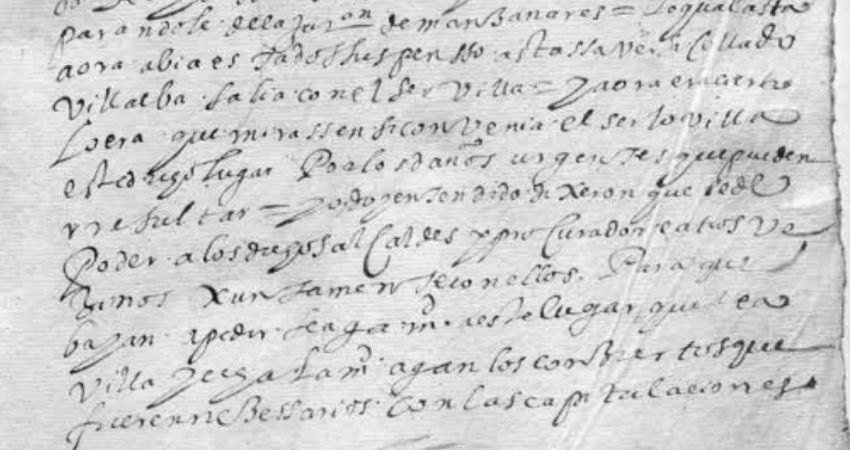 parandole de la Jur.on de manzanares = lo qual asta
aora abia estado suspensso asta saver si Collado
Villalba salia con el ser villa = y aora era cierto
lo era que mirassen si convenia el serlo villa
este dicho lugar Por los daños urgentes que pueden
rresultar = y todo entendido dixeron que se de
Poder a los dichos alCaldes y proCurador e a dos ve
zinos Xuntamente con ellos. Para que
bayan a pedir se aga m.d a este lugar que sea
villa y echa la m.d agan los conziertos que
fueren neçessarios con las capitulaciones